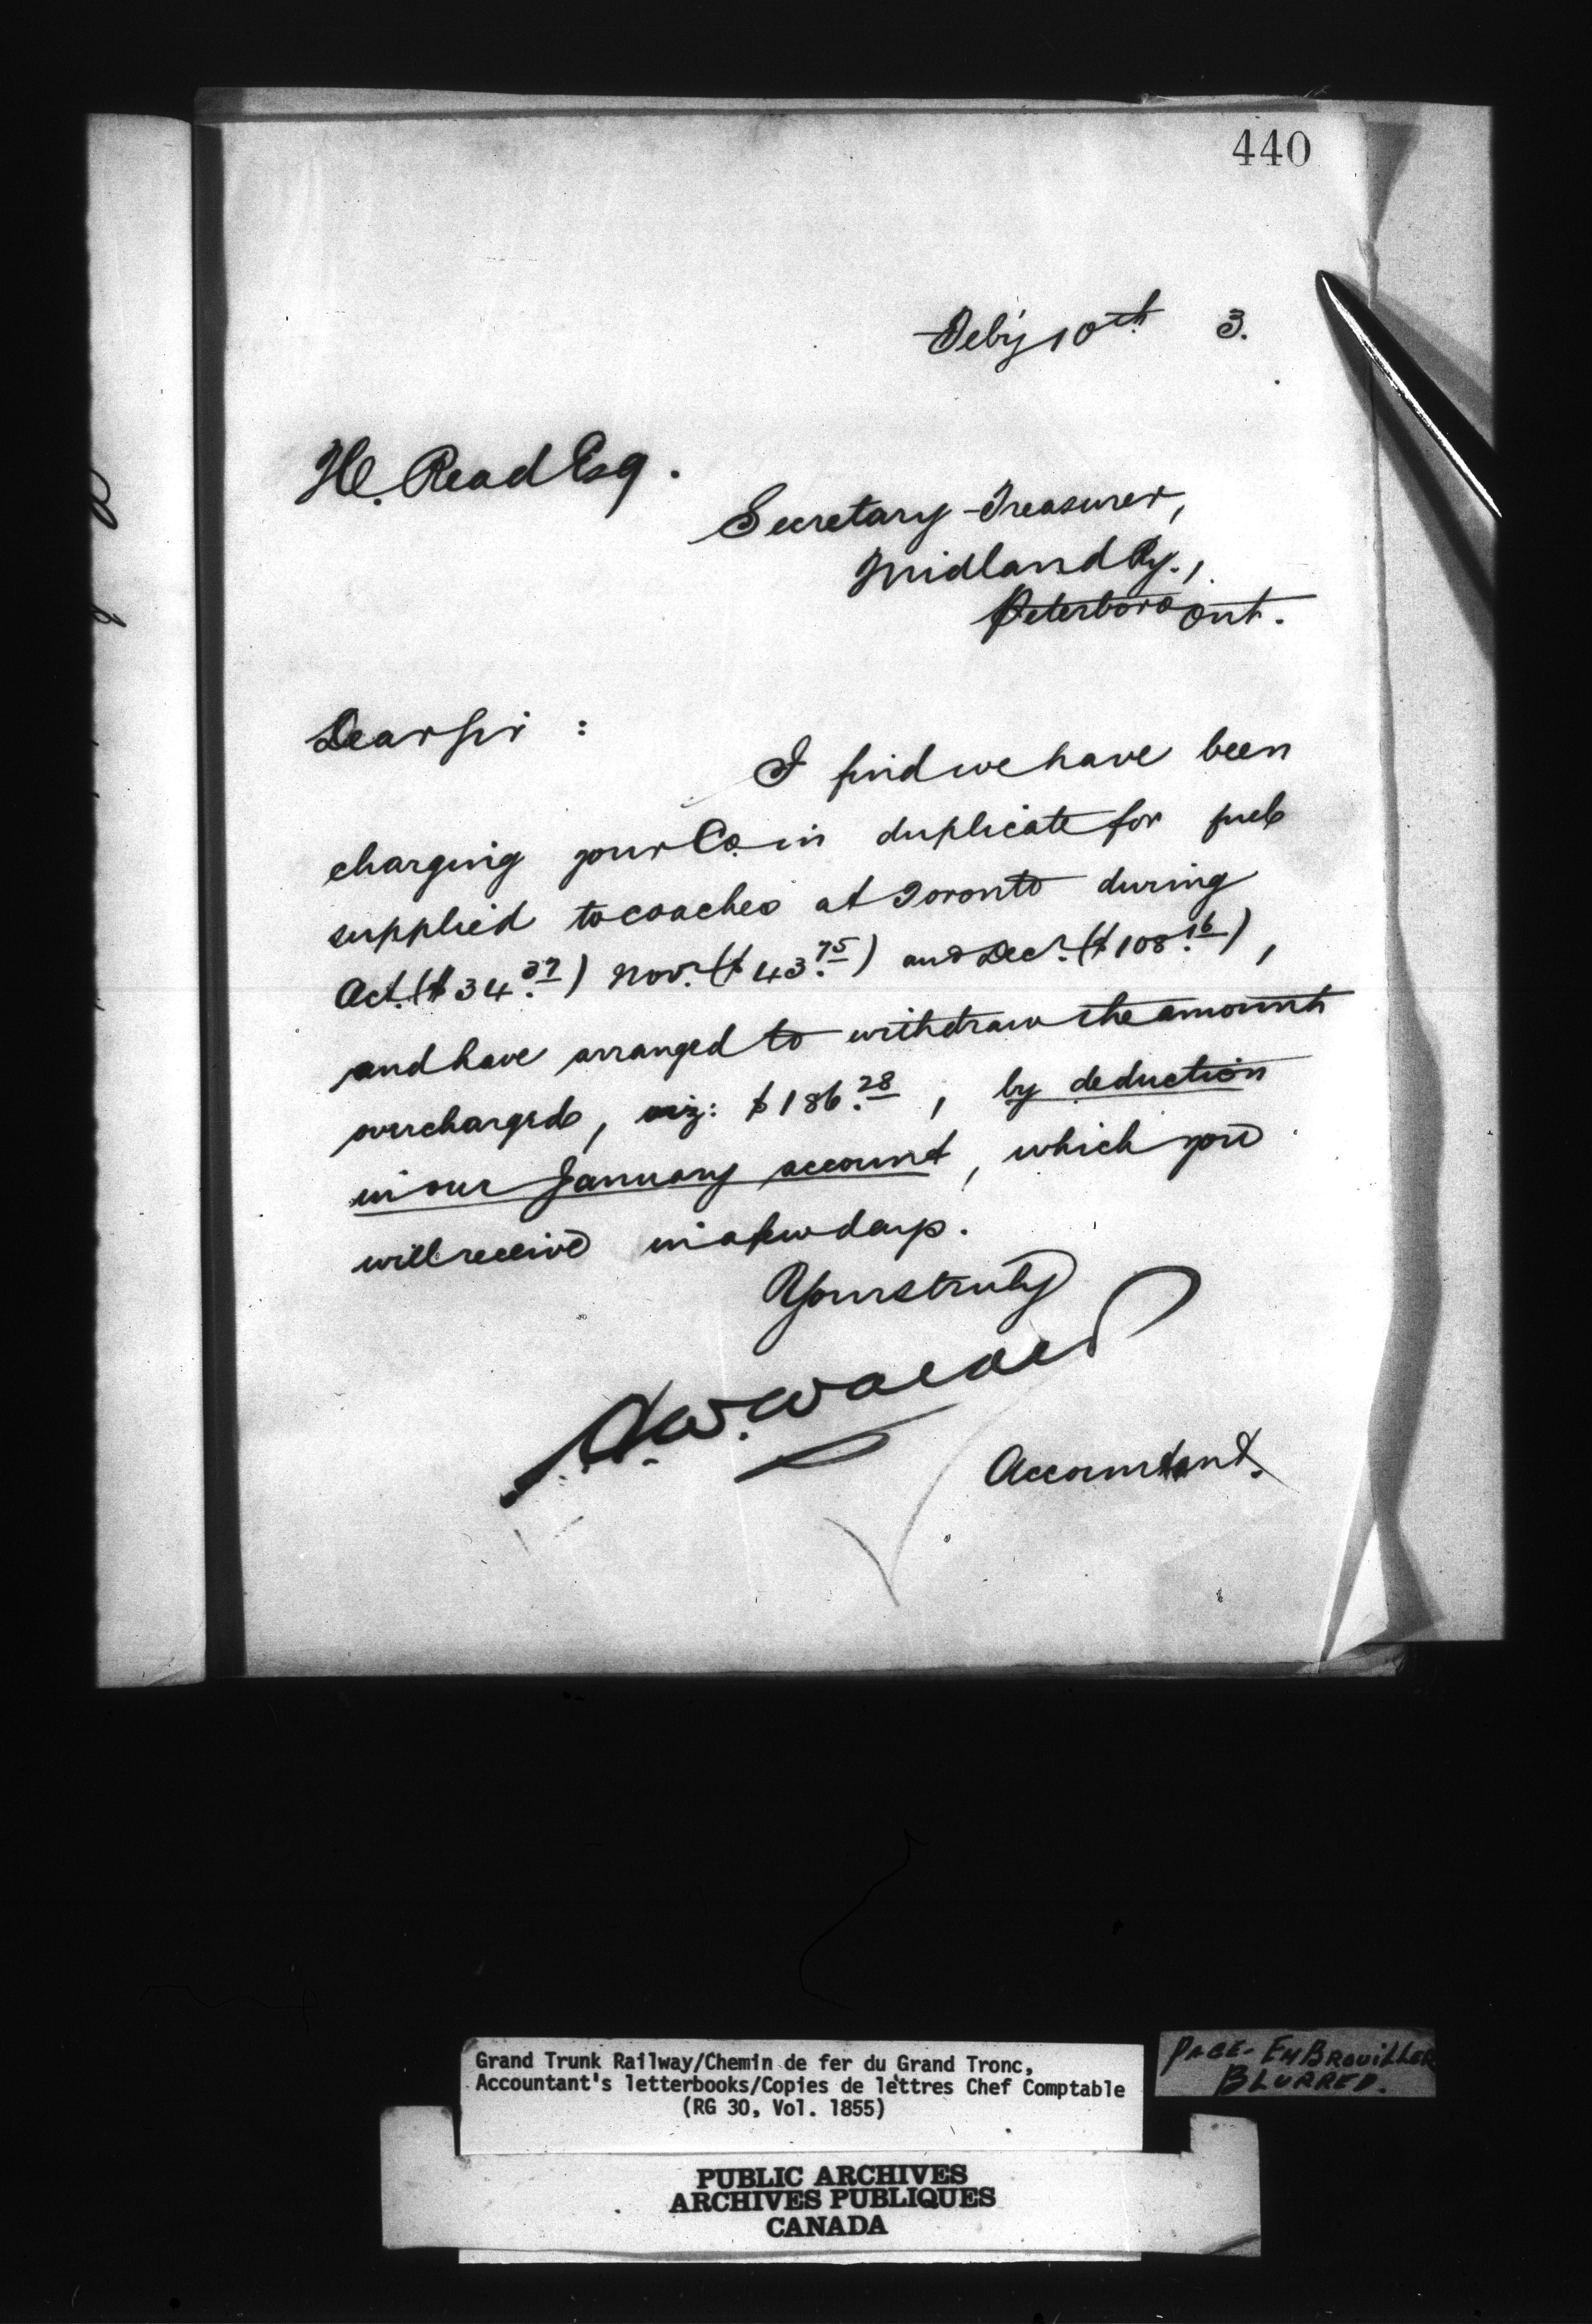 440
Feb'y 10th 3.
H. Read Esq.
Secretary-Treasurer,
Midland Ry.,
Peterboro Ont.
Dear Sir :
I find we have been
charging your Co. in duplicate for fuel
supplied to coaches at Toronto during
Oct. ($34.37) Nov. ($43.75) and Dec. ($108.16),
and have arranged to withdraw the amount
overcharged, viz: $186.28, by deduction
in our January account, which you
will receive in a few days.
Yours truly
Accountant.
Grand Trunk Railway/Chemin de fer du Grand Tronc,
Accountant's letterbooks/Copies de lettres Chef Comptable
(RG 30, Vol. 1855)
PAGE-EMBROUILLER
BLURRED.
PUBLIC ARCHIVES
ARCHIVES PUBLIQUES
CANADA